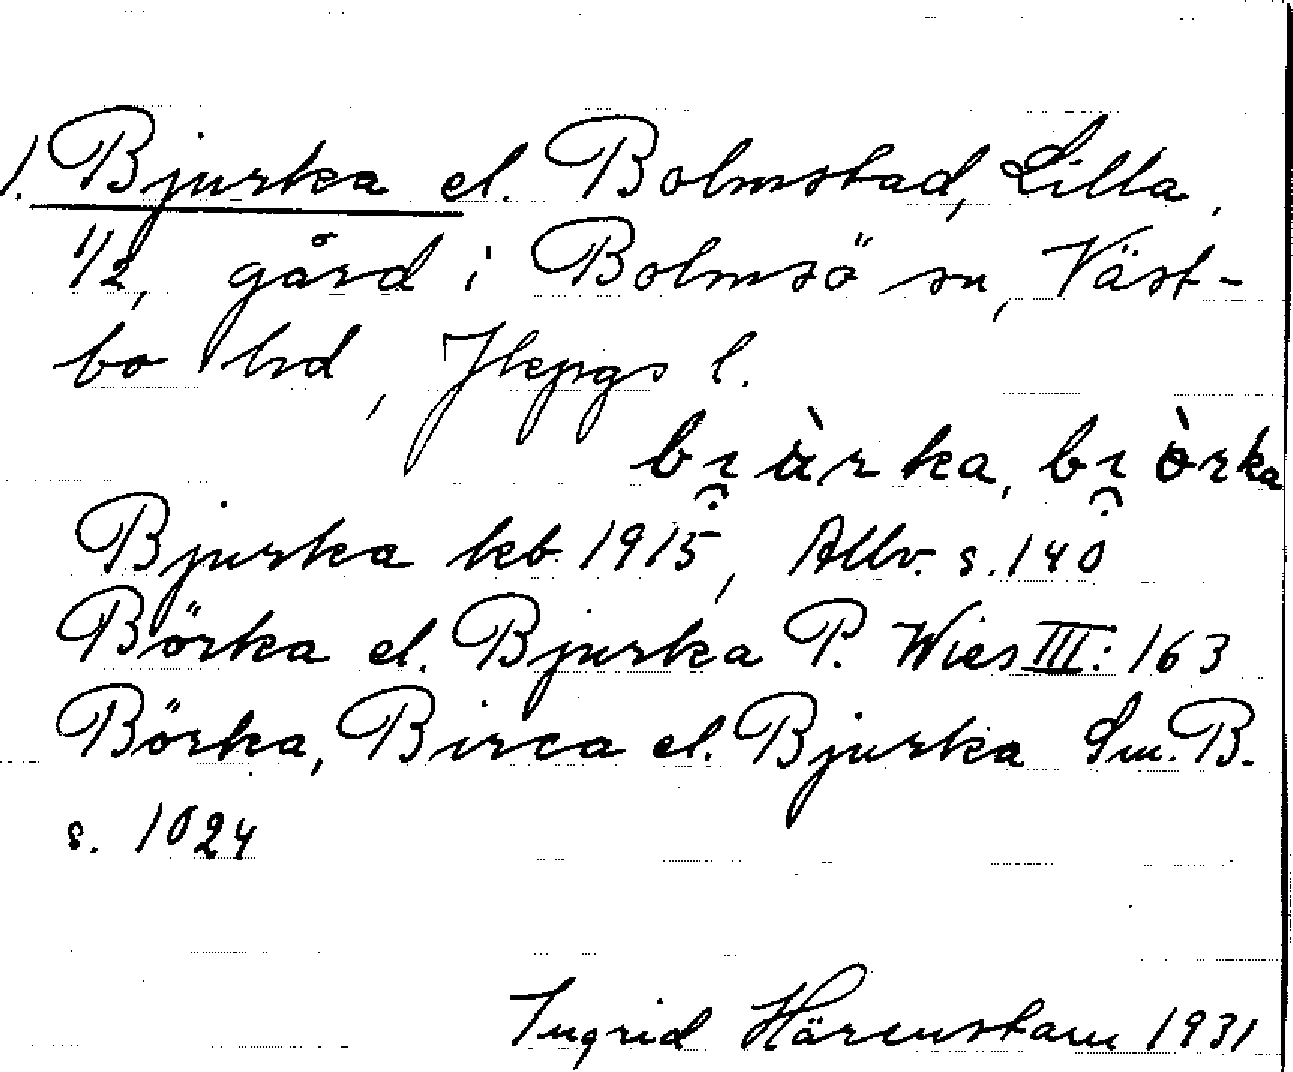 1. Bjurka el. Bolmstad, Lilla,
1/2, gård i Bolmsö sn, Väst-
bo hd, Jkpgs l.
bı̯ùrka, bı̯òrka
Bjurka kb. 1915, Allv. s. 140
Börka el. Bjurka P. Wies III: 163
Börka, Birca el. Bjurka Sm. B.
s. 1024
Ingrid Härenstam 1931